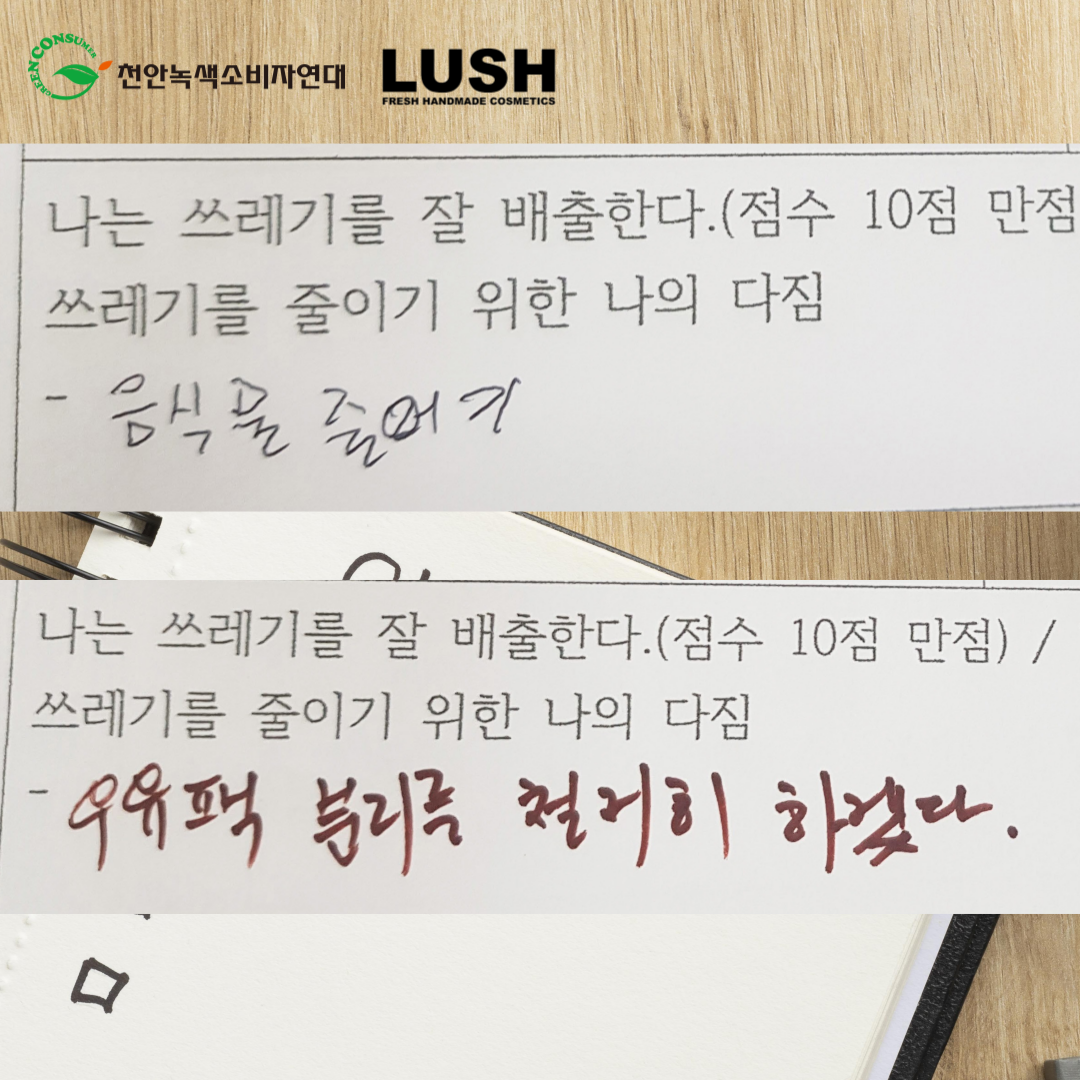 GREEN CONSUMER
천안녹색소비자연대
LUSH
FRESH HANDMADE COSMETICS
나는 쓰레기를 잘 배출한다.(점수 10점 만점
쓰레기를 줄이기 위한 나의 다짐
- 음식물 줄이기
나는 쓰레기를 잘 배출한다.(점수 10점 만점) /
쓰레기를 줄이기 위한 나의 다짐
- 우유팩 분리를 철저히 하겠다.